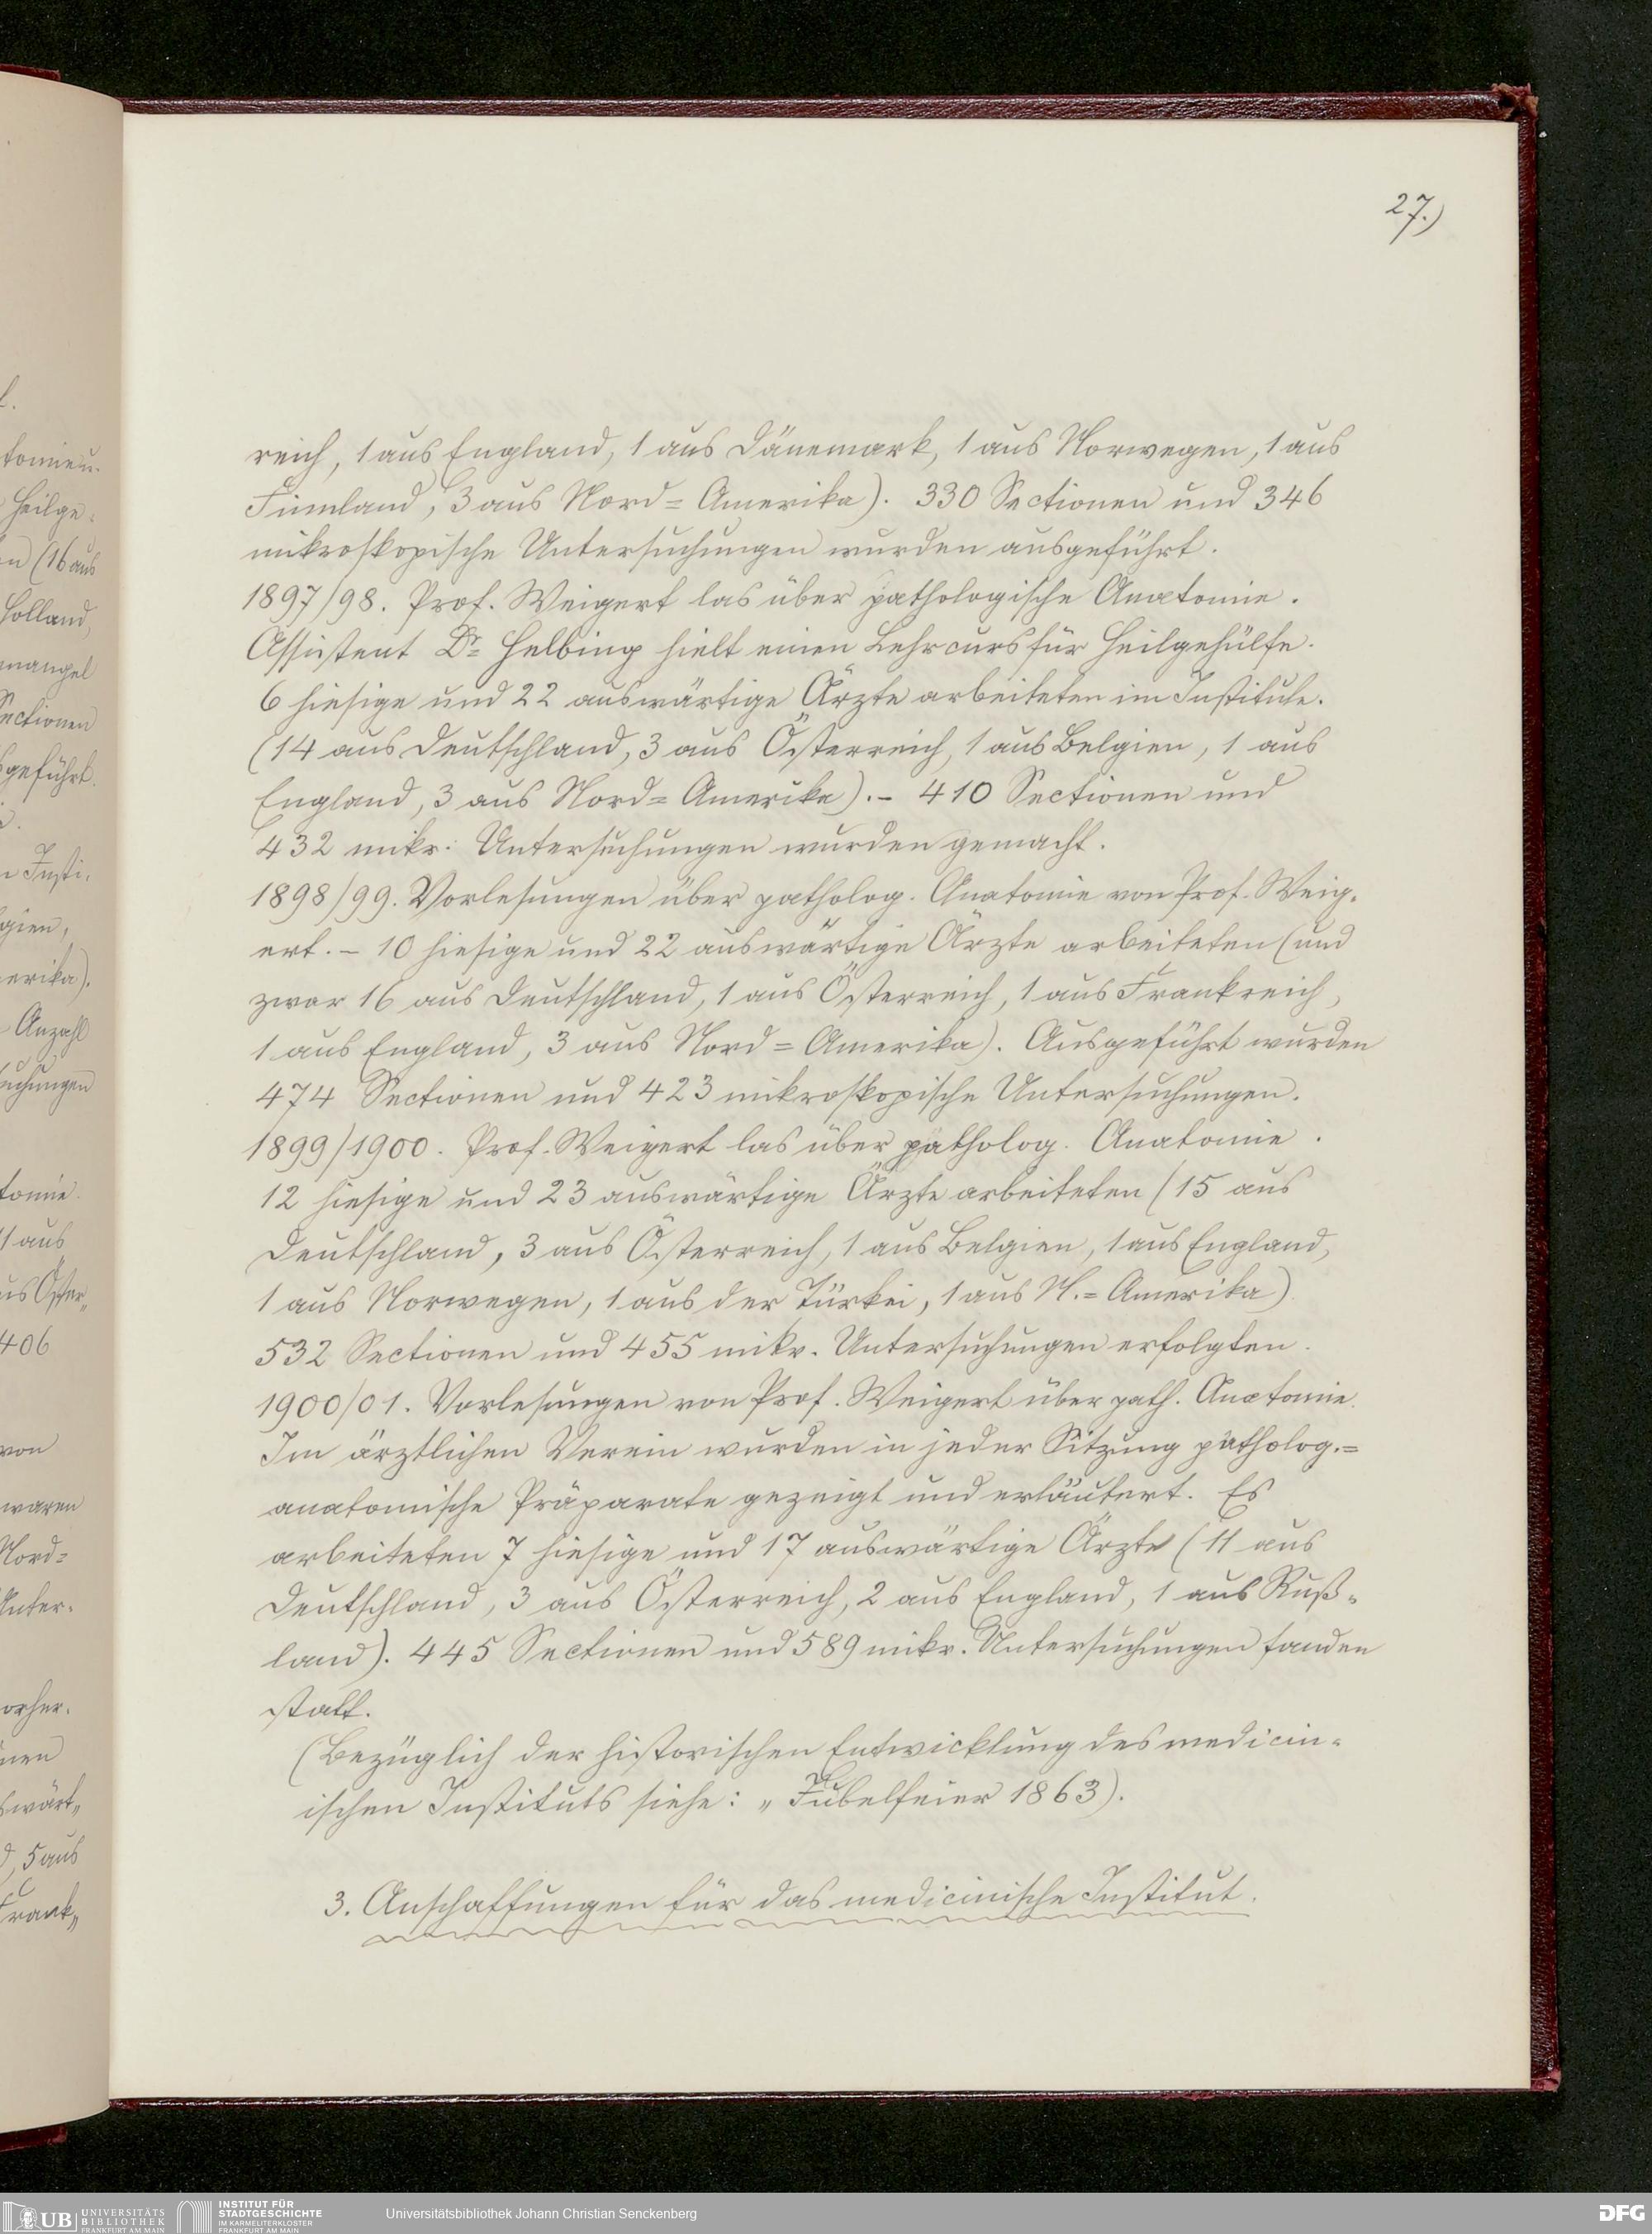 27.)
reich, 1 aus England, 1 aus Dänemark, 1 aus Norwegen, 1 aus
Finnland, 3 aus Nord=Amerika). 330 Sectionen und 346
mikroskopische Untersuchungen wurden ausgeführt.
1897/98. Prof. Weigert las über pathologische Anatomie.
Assistent Dr. Helbing hielt einen Lehrcurs für Heilgehülfe.
6 hiesige und 22 auswärtige Ärzte arbeiteten im Institute.
(14 aus Deutschland, 3 aus Österreich, 1 aus Belgien, 1 aus
England, 3 aus Nord=Amerika).- 410 Sectionen und
432 mikr. Untersuchungen wurden gemacht.
1898/99. Vorlesungen über patholog. Anatomie von Prof. Weig-
ert. - 10 hiesige und 22 auswärtige Ärzte arbeiteten (und
zwar 16 aus Deutschland, 1 aus Österreich, 1 aus Frankreich,
1 aus England, 3 aus Nord=Amerika). Ausgeführt wurden
474 Sectionen und 423 mikroskopische Untersuchungen.
1899/1900. Prof. Weigert las über patholog. Anatomie.
12 hiesige und 23 auswärtige Ärzte arbeiteten (15 aus
Deutschland, 3 aus Österreich, 1 aus Belgien, 1 aus England,
1 aus Norwegen, 1 aus der Türkei, 1 aus N.=Amerika)
532 Sectionen und 455 mikr. Untersuchungen erfolgten.
1900/01. Vorlesungen von Prof. Weigert über path. Anatomie.
Im ärztlichen Verein wurden in jeder Sitzung patholog.=
anatomische Präparate gezeigt und erläutert. Es
arbeiteten 7 hiesige und 17 auswärtige Ärzte (11 aus
Deutschland, 3 aus Österreich, 2 aus England, 1 aus Ruß-
land). 445 Sectionen und 589 mikr. Untersuchungen fanden
statt.
(Bezüglich der historischen Entwicklung des medicin-
ischen Instituts siehe: „Jubelfeier 1863).
3. Anschaffungen für das medicinische Institut.
tomie u.
Heilge-
n (16 aus
Holland,
mangel
Sectionen
sgeführt.
n Insti-
gien,
erika).
Anzahl
uchungen
tomie.
1 aus
us Öster„
406
von
waren
Nord=
Unter-
orher-
nen
swärt„
d, 5 aus
Frank„
UB UNIVERSITÄTS
BIBLIOTHEK
FRANKFURT AM MAIN
INSTITUT FÜR
STADTGESCHICHTE
IM KARMELITERKLOSTER
FRANKFURT AM MAIN
Universitätsbibliothek Johann Christian Senckenberg
DFG